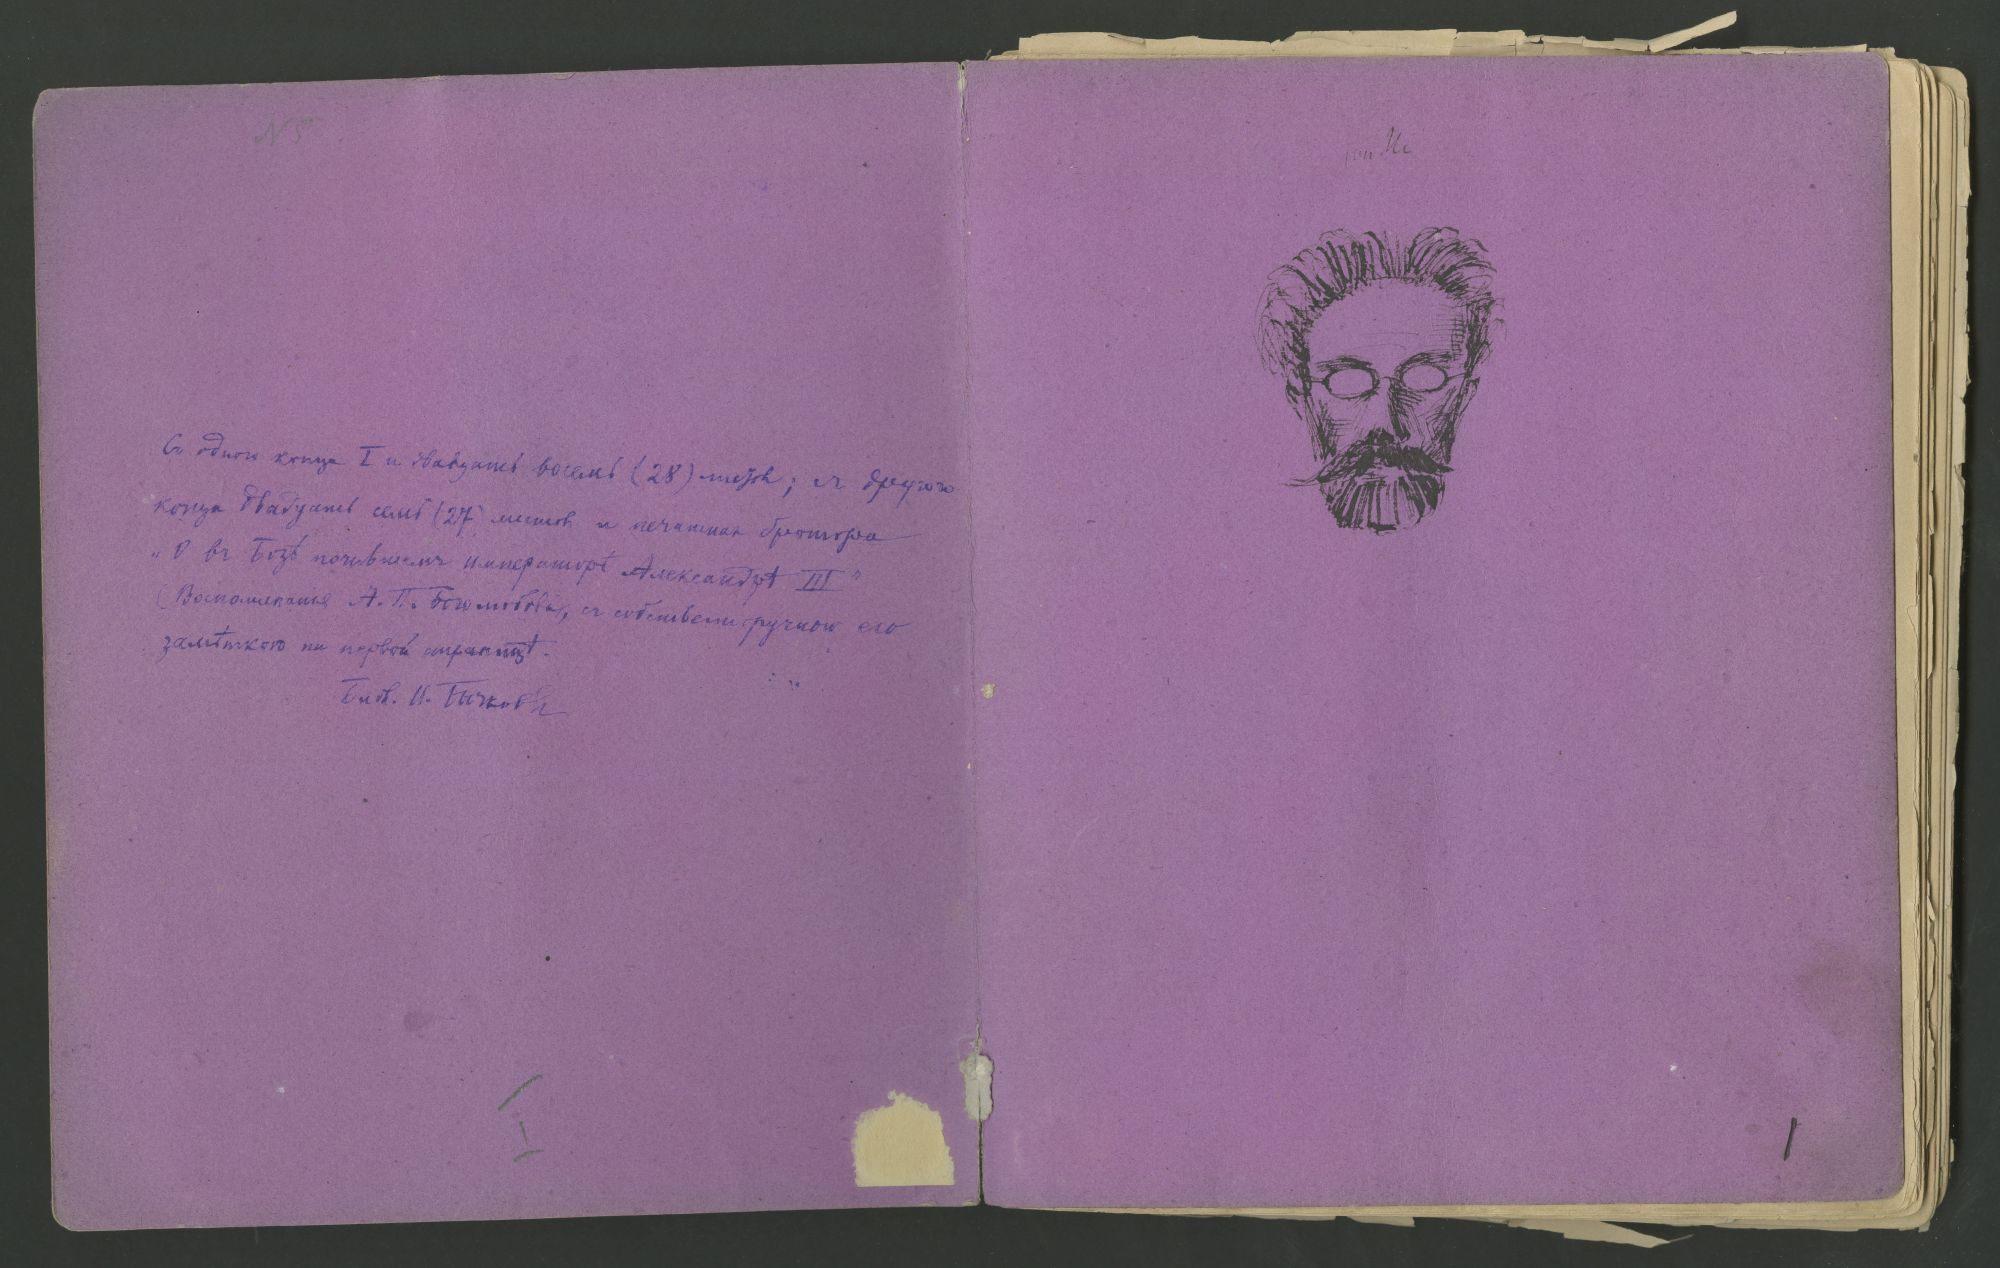 N 5
Съ одного конца I и двадцать восемь (28) листов; съ другого
конца двадцать семь (27) листов и печатная брошюра
„О въ Бозѣ почившемъ императорѣ Александрѣ III"
(Воспоминанія А. П. Боголюбова, съ собственноручною его
замѣткою на первой страницѣ.
Библ. И. Бычковъ
I
1